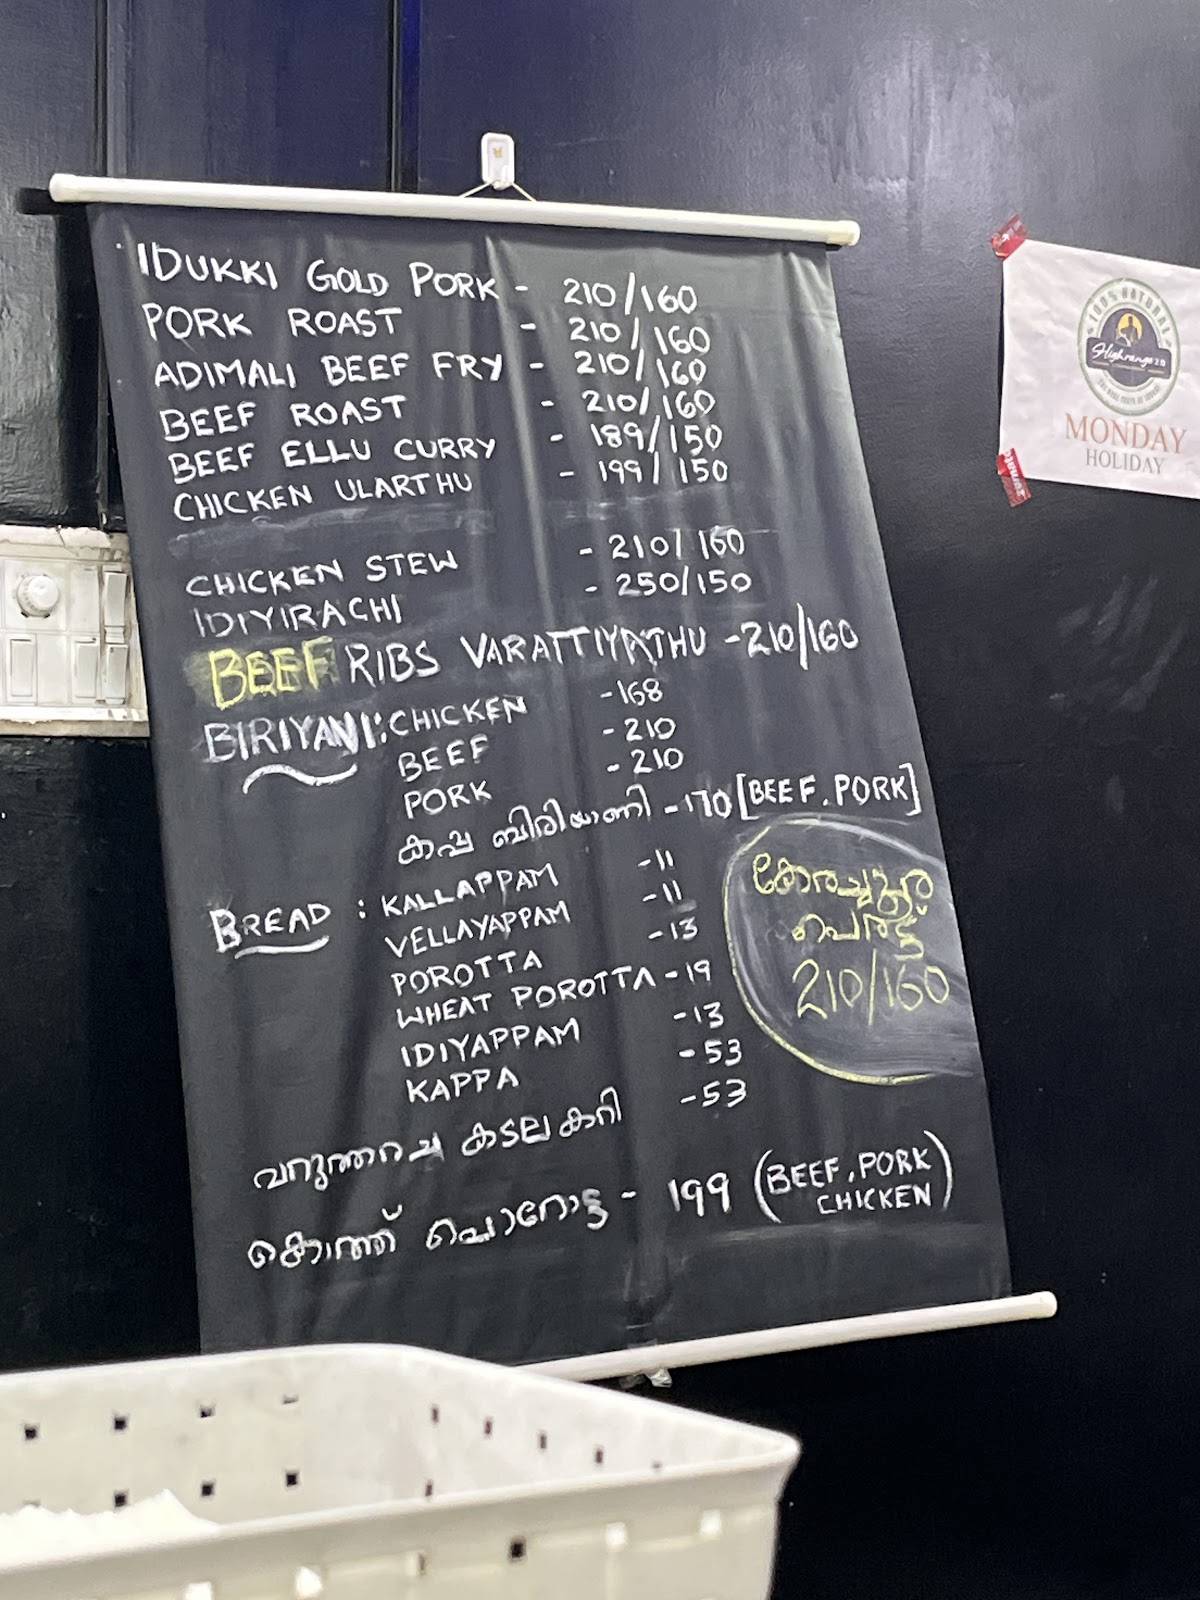 IDUKKI GOLD PORK - 210/160
PORK ROAST - 210/160
ADIMALI BEEF FRY - 210/160
BEEF ROAST - 210/160
BEEF ELLU CURRY - 189/150
CHICKEN ULARTHU - 199/150
CHICKEN STEW - 210/160
IDIYIRACHI - 250/150
BEEF RIBS VARATTIYATHU - 210/160
BIRIYANI: CHICKEN - 168
BEEF - 210
PORK - 210
കപ്പ ബിരിയാണി - 170 [BEEF, PORK]
BREAD : KALLAPPAM - 11
VELLAYAPPAM - 11
POROTTA - 13
WHEAT POROTTA - 19
IDIYAPPAM - 13
KAPPA - 53
വറുത്തരച്ച കടല കറി - 53
കൊത്ത് പൊറോട്ട - 199 (BEEF, PORK
CHICKEN)
210/160
100% NATURAL
Highrange 2.0
MONDAY
HOLIDAY
zomato